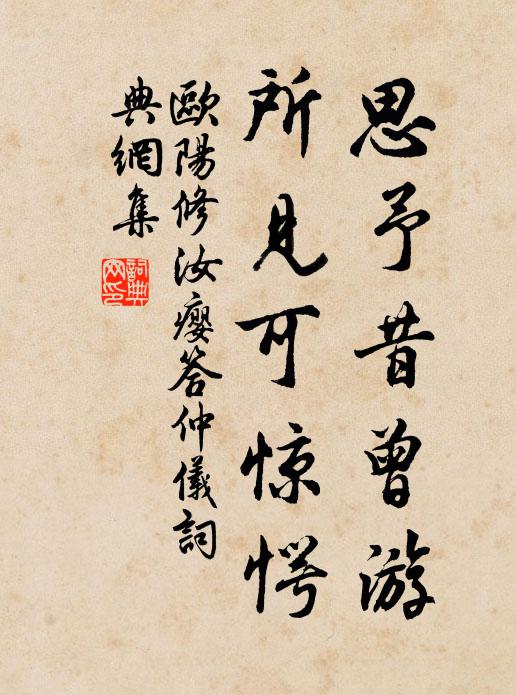 思予昔曾游
所見可惊愕
歐陽修汝癭答仲儀詞
典網集
詞典网印